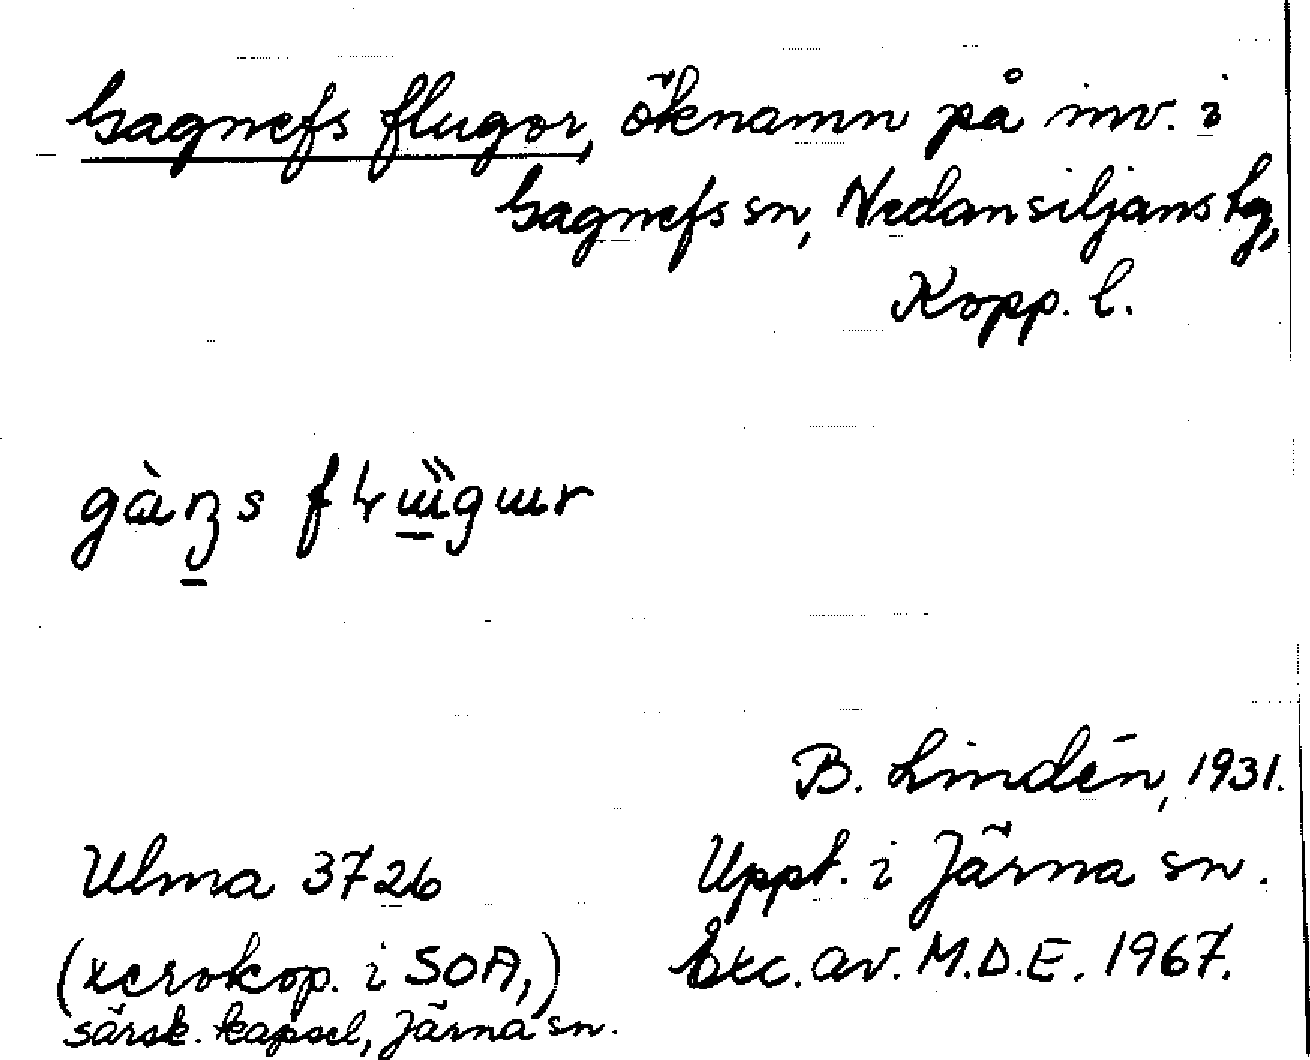 Gagnefs flugor, öknamn på inv. i
Gagnefs sn, Nedansiljans hg,
Kopp. l.
B. Lindén, 1931.
Ulma 3726
Uppt. i Järna sn.
(xerokop. i SOA,)
Exc. av. M.D.E. 1967.
särsk. kapsel, Järna sn.